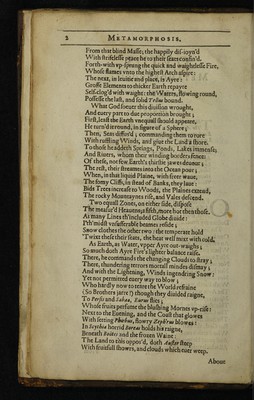 2 METAMORPHOSIS.
From that blind Masse; the happily dis-ioyn'd
With strifelesse peace he to their seats confin'd.
Forth-with vp-sprung the quick and waightlesse Fire,
Whose flames vnto the highest Arch aspire:
The next, in leuitie and place, is Ayre:
Grosse Elements to thicker Earth repayre
Self-clog'd with waight: the Waters, flowing round,
Possesse the last, and solid Tellus bound.
What God soeuer this diuision wrought,
And euery part to due proportion brought;
First, least the Earth vnequall should appeare,
He turn'd it round, in figure of a Sphere;
Then, Seas diffus'd; commanding them to roare
With ruffling Winds, and giue the Land a shore.
To those he addeth Springs, Ponds, Lakes immense,
And Riuers, whom their winding borders fence:
Of these, not few Earth's thirstie iawes deuour;
The rest, their streames into the Ocean pour;
When, in that liquid Plaine, with freer waue,
The fomy Cliffs, in stead of Banks, they laue:
Bids Trees increase to Woods, the Plaines extend,
The rocky Mountaynes rise, and Vales descend.
Two equall Zones, on either side, dispose
The measur'd Heauens; a fifth, more hot then those.
As many Lines th'included Globe diuide:
I'th'midst vnsufferable beames reside;
Snow clothes the other two: the temperate hold
'Twixt these their seats, the heat well mixt with cold.
As Earth, as Water, vpper Ayre out-waighs;
So much doth Ayre Fire's lighter balance raise.
There, he commands the changing Clouds to stray;
There, thundering terrors mortall mindes dismay;
And with the Lightning, Winds ingendring Snow:
Yet not permitted euery way to blow;
Who hardly now to teare the World refraine
(So Brothers iarre!) though they diuided raigne.
To Persis and Sabaa, Eurus flies;
Whose fruits perfume the blushing Mornes vp-rise:
Next to the Euening, and the Coast that glowes
With setting Phœbus, flowry Zeph'rus blowes:
In Scythia horrid Boreas holds his raigne,
Beneath Boötes and the frozen Waine:
The Land to this oppos'd, doth Auster steep
With fruitfull showrs, and clouds which euer weep.
About